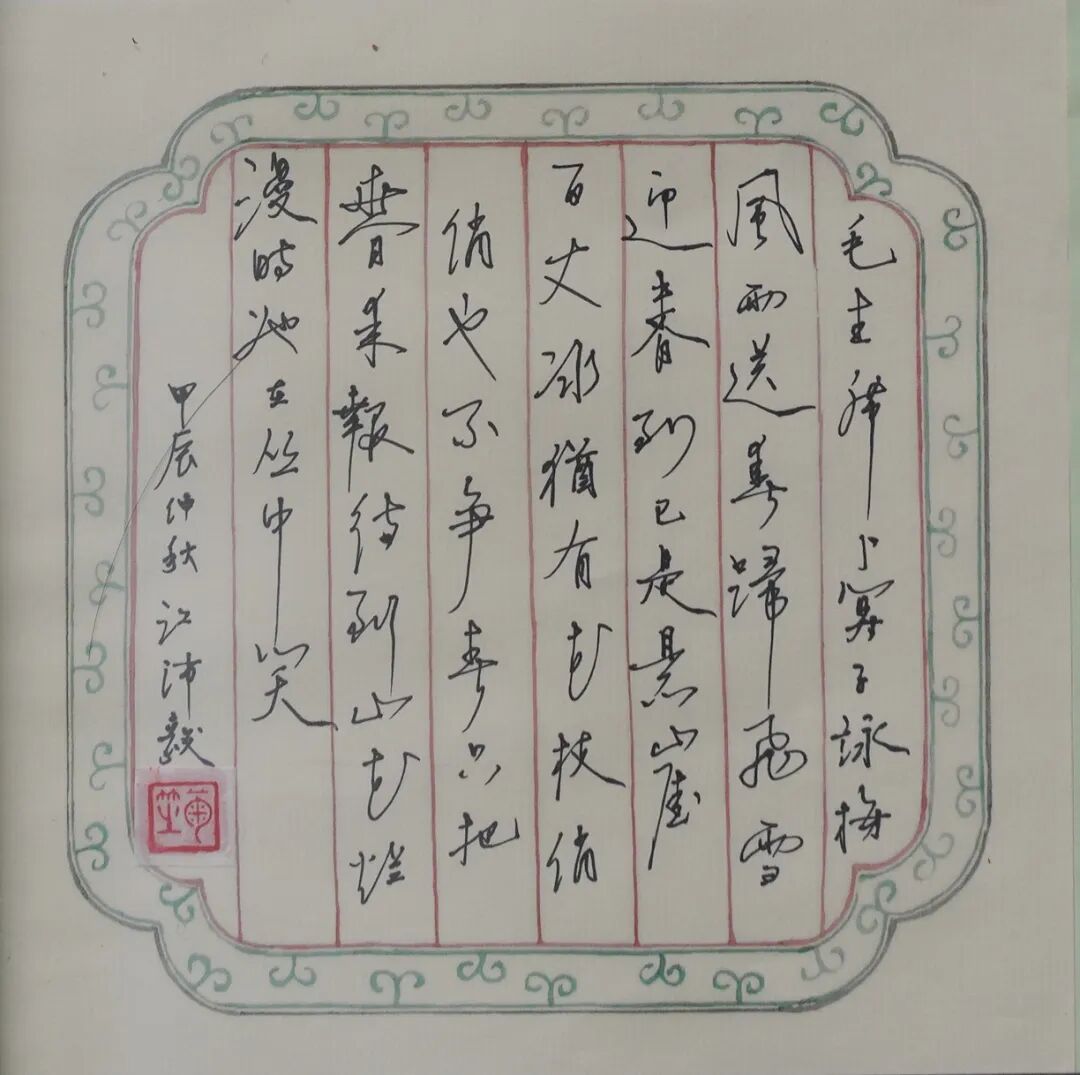 毛主席卜算子詠梅
風雨送春歸飛雪
迎春到已是悬崖
百丈冰猶有花枝俏
俏也不争春只把
春来報待到山花烂
漫時她在丛中笑
甲辰仲秋江沛毅